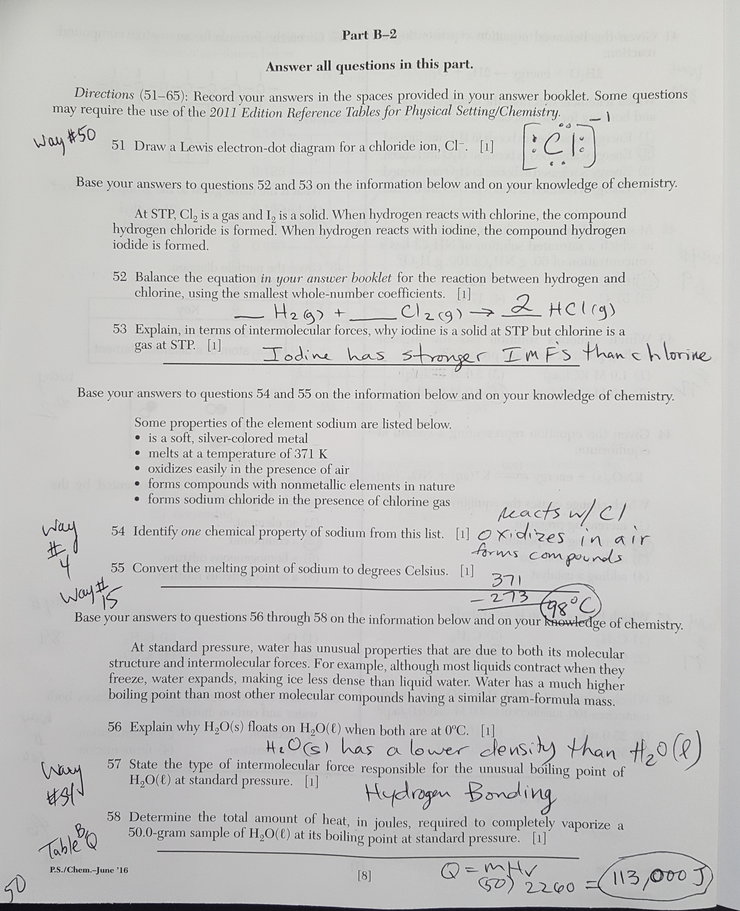 Part B–2
Answer all questions in this part.
Directions (51–65): Record your answers in the spaces provided in your answer booklet. Some questions
may require the use of the 2011 Edition Reference Tables for Physical Setting/Chemistry.
Way #50
51 Draw a Lewis electron-dot diagram for a chloride ion, Cl⁻. [1] [:Cl:] -1
Base your answers to questions 52 and 53 on the information below and on your knowledge of chemistry.
At STP, Cl₂ is a gas and I₂ is a solid. When hydrogen reacts with chlorine, the compound
hydrogen chloride is formed. When hydrogen reacts with iodine, the compound hydrogen
iodide is formed.
52 Balance the equation in your answer booklet for the reaction between hydrogen and
chlorine, using the smallest whole-number coefficients. [1]
__ H₂(g) + __ Cl₂(g) → 2 HCl(g)
53 Explain, in terms of intermolecular forces, why iodine is a solid at STP but chlorine is a
gas at STP. [1] Iodine has stronger IMF's than chlorine
Base your answers to questions 54 and 55 on the information below and on your knowledge of chemistry.
Some properties of the element sodium are listed below.
• is a soft, silver-colored metal
• melts at a temperature of 371 K
• oxidizes easily in the presence of air
• forms compounds with nonmetallic elements in nature
• forms sodium chloride in the presence of chlorine gas
reacts w/ Cl
Way #4
54 Identify one chemical property of sodium from this list. [1] oxidizes in air
forms compounds
55 Convert the melting point of sodium to degrees Celsius. [1]
Way # 15
371
- 273 98°C
Base your answers to questions 56 through 58 on the information below and on your knowledge of chemistry.
At standard pressure, water has unusual properties that are due to both its molecular
structure and intermolecular forces. For example, although most liquids contract when they
freeze, water expands, making ice less dense than liquid water. Water has a much higher
boiling point than most other molecular compounds having a similar gram-formula mass.
56 Explain why H₂O(s) floats on H₂O(ℓ) when both are at 0°C. [1]
H₂O(s) has a lower density than H₂O(l)
Way
57 State the type of intermolecular force responsible for the unusual boiling point of
H₂O(ℓ) at standard pressure. [1] Hydrogen Bonding
58 Determine the total amount of heat, in joules, required to completely vaporize a
50.0-gram sample of H₂O(ℓ) at its boiling point at standard pressure. [1]
Table B, Q
P.S./Chem.–June '16
[8]
Q = mHv
(50) 2260 = 113,000 J
50